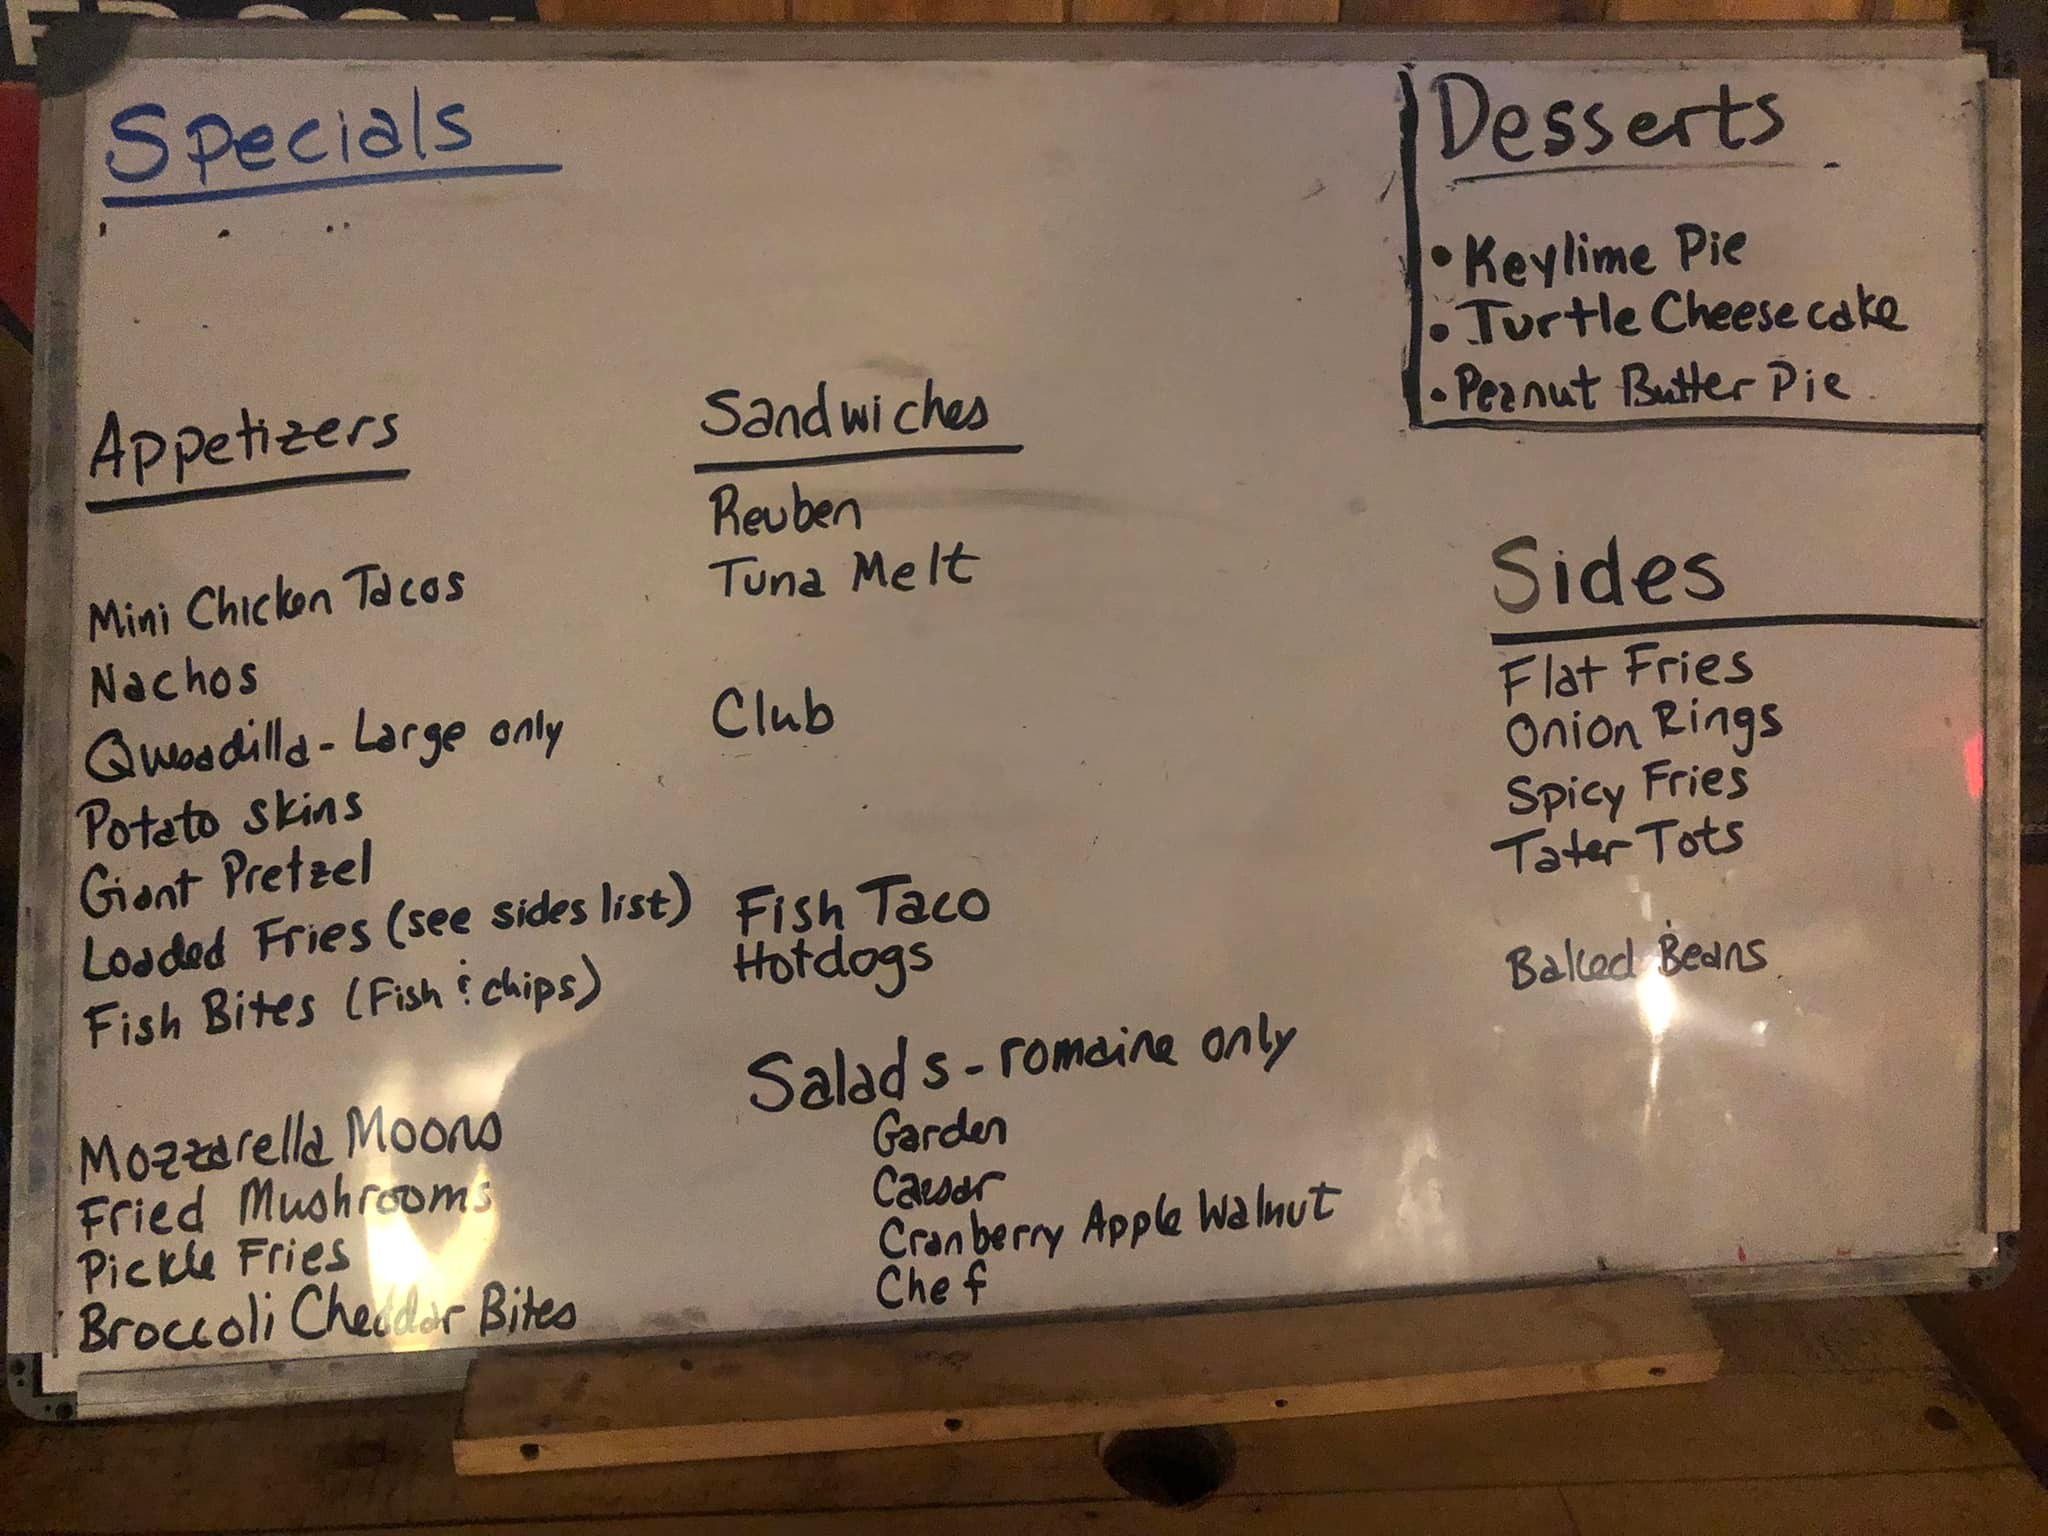 Specials
Appetizers
Mini Chicken Tacos
Nachos
Quesadilla - Large only
Potato Skins
Giant Pretzel
Loaded Fries (see sides list)
Fish Bites (Fish & chips)
Mozzarella Moons
Fried Mushrooms
Pickle Fries
Broccoli Cheddar Bites
Sandwiches
Reuben
Tuna Melt
Club
Fish Taco
Hotdogs
Salads - romaine only
Garden
Caesar
Cranberry Apple Walnut
Chef
Desserts
• Keylime Pie
• Turtle Cheesecake
• Peanut Butter Pie
Sides
Flat Fries
Onion Rings
Spicy Fries
Tater Tots
Baked Beans